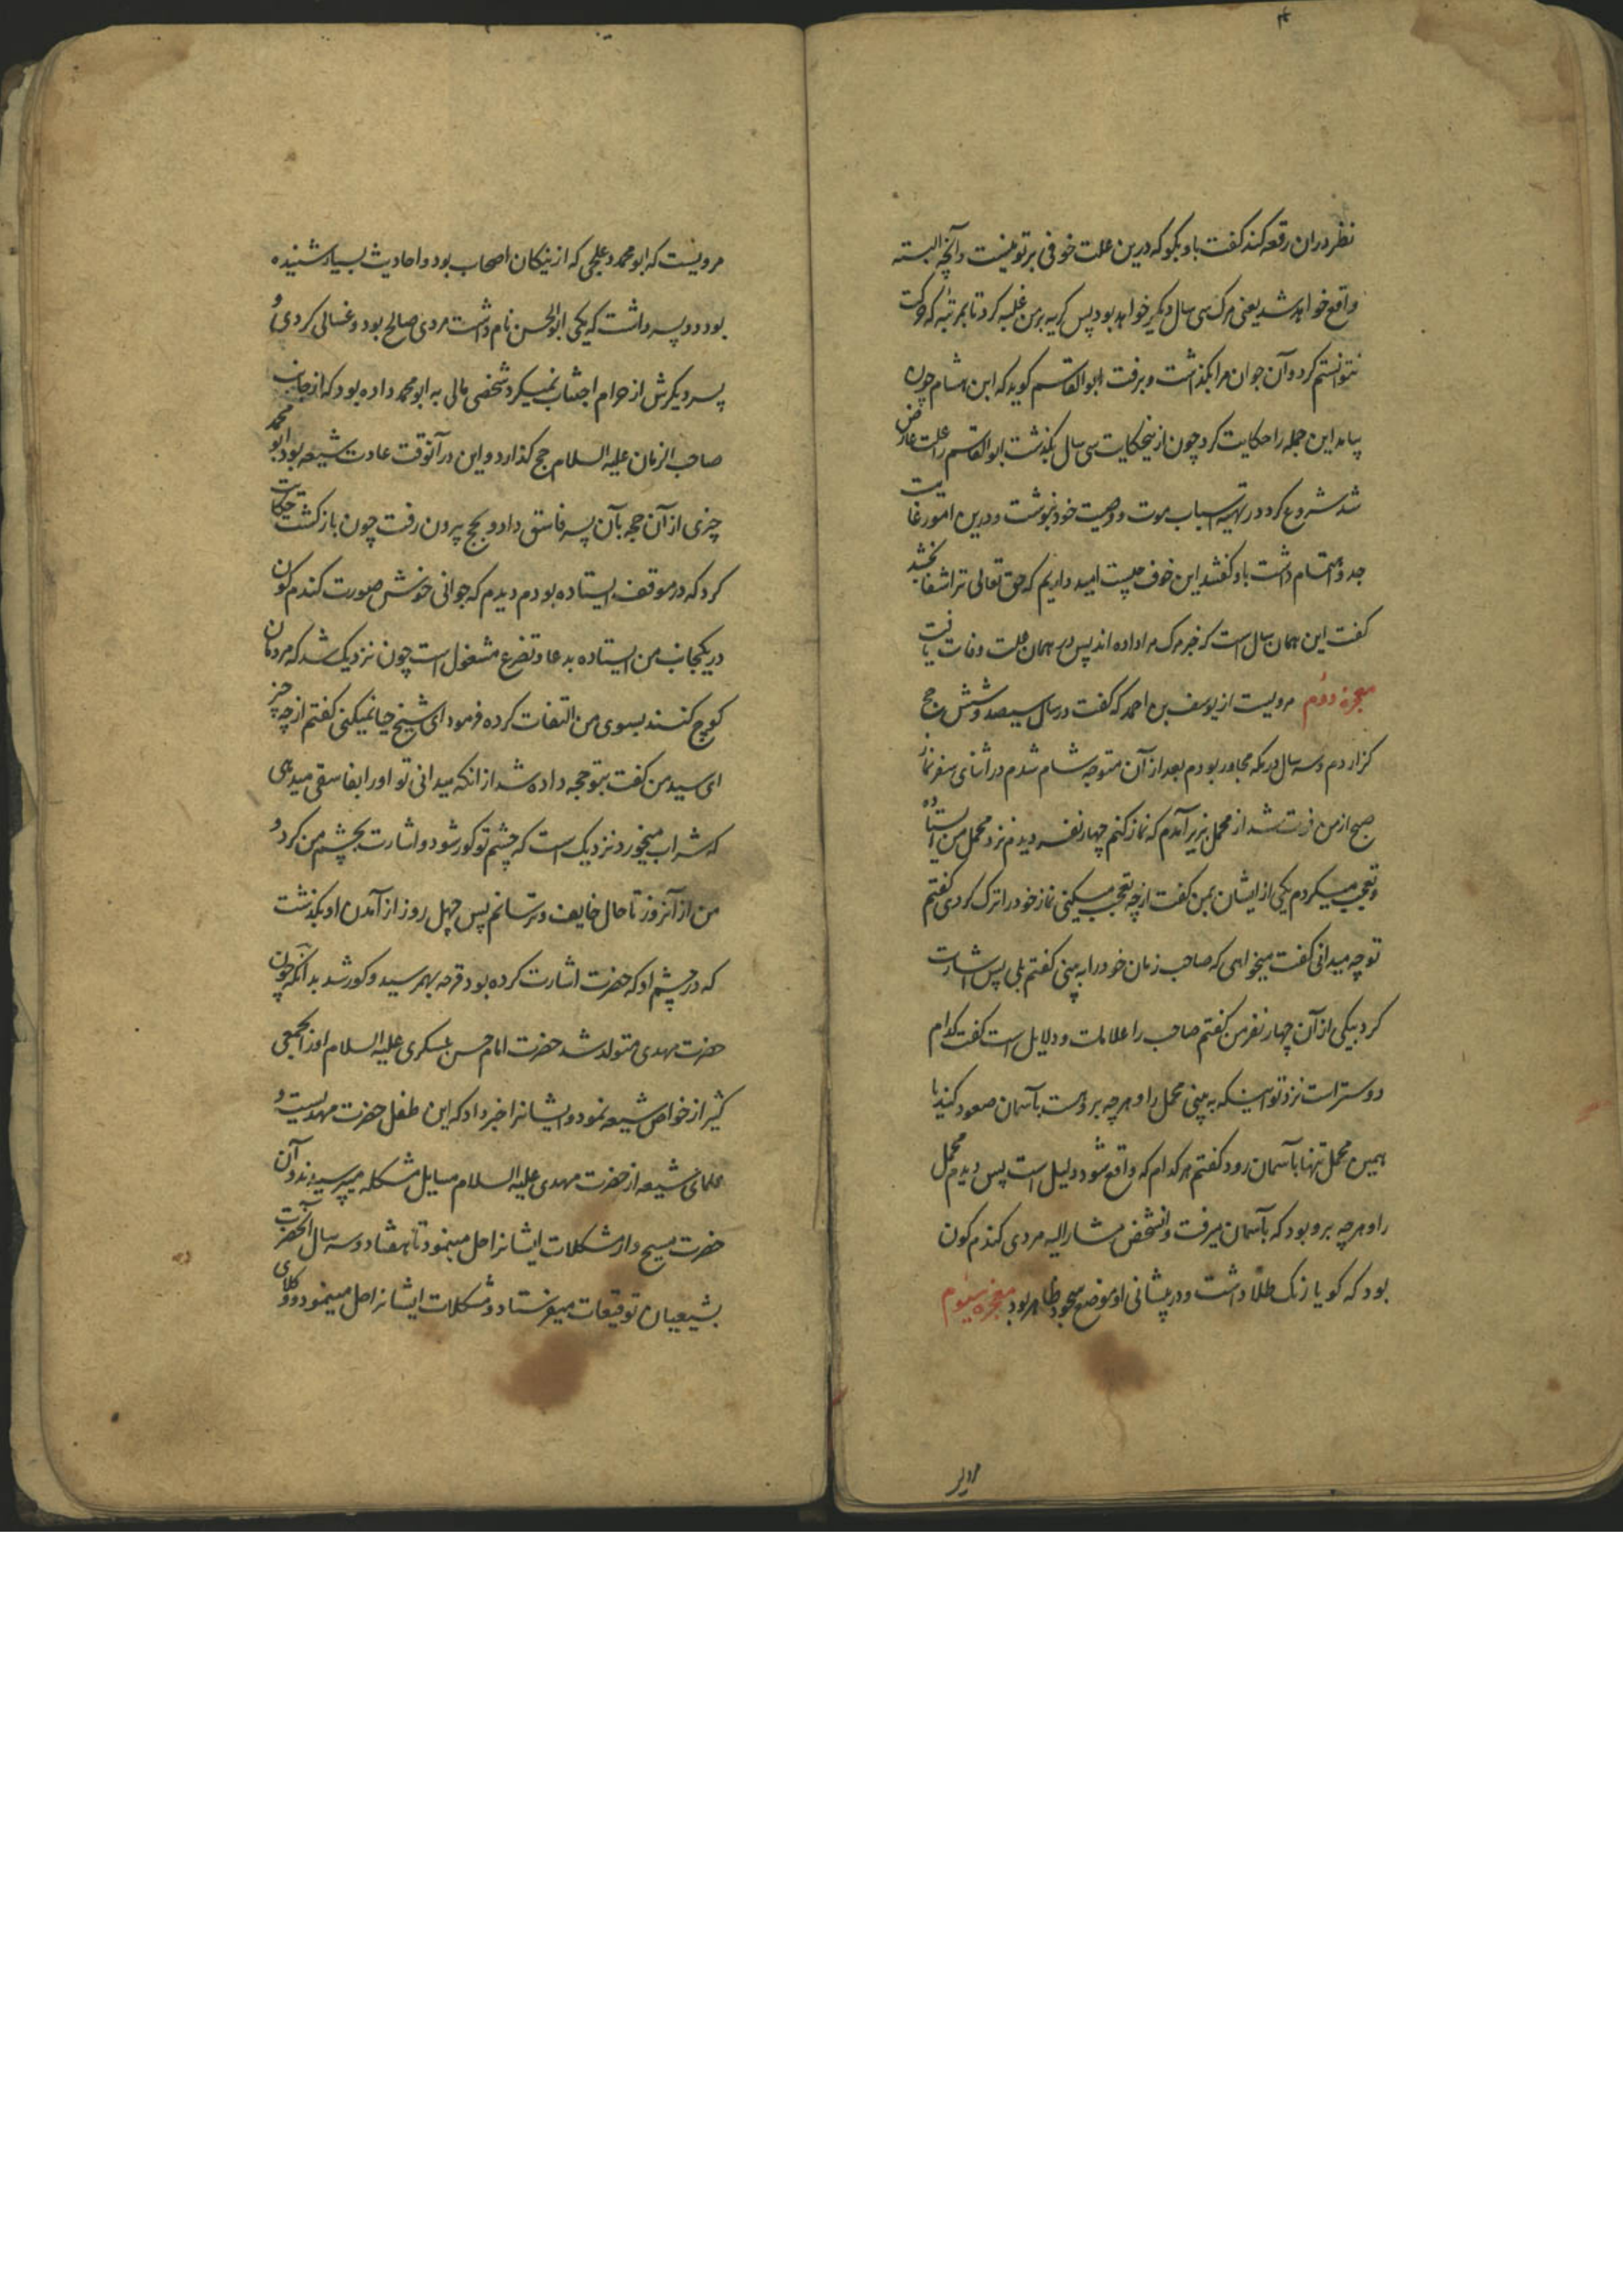 نظر دران رقعه کند کفت باو بکو که درین علت خوفی بر تو نیست و آنچه البته
واقع خواهد شد یعنی مرک سی سال دیکر خواهد بود پس کریه بر من غلبه کرد تا بمرتبه که حرکت
نتوانستم کرد و آن جوان مرا بکذاشت و برفت ابوالقاسم کوید که ابن هشام چون
بیامد این جمله را حکایت کرد چون ازینحکایت سی سال بکذشت ابوالقاسم را علت عارض
شد شروع کرد در تهیه اسباب موت و وصیت خود نوشت و درین امور غایت
جد و اهتمام داشت باو کفتند این خوف چیست امید داریم که حق تعالی ترا شفا بخشد
کفت این همان سال است که خبر مرک مرا داده اند پس در همان علت وفات یافت
معجزه دوم مرویست از یوسف بن احمد که کفت در سال سیصد و شش حج
کزاردم و سه سال در مکه مجاور بودم بعد از آن متوجه شام شدم در اثنای سفر نماز
صبح از من فوت شد از محمل بزیر آمدم که نماز کنم چهار نفر دیدم نزد محمل من ایستاده
و تعجب میکردم یکی از ایشان بمن کفت از چه تعجب میکنی نماز خود را ترک کردی کفتم
تو چه میدانی کفت میخواهی که صاحب زمان خود را به بینی کفتم بلی پس اشارت
کرد بیکی از آن چهار نفر من کفتم صاحب را علامات و دلایل است کفت کدام
دوستر است نزد تو اینکه به بینی محمل را و هر چه بر وست بآسمان صعود کند یا
همین محمل تنها بآسمان رود کفتم هر کدام که واقع شود دلیل است پس دیدم محمل
را و هر چه برو بود که بآسمان میرفت و آنشخص مشار الیه مردی کندم کون
بود که کویا رنک طلا داشت و در پیشانی او موضع سجود ظاهر بود معجزه سیوم
مرویست که ابو محمد دعلجی که از نیکان اصحاب بود و احادیث بسیار شنیده
بود دو پسر داشت که یکی ابوالحسن نام داشت مردی صالح بود و غسالی کردی و
پسر دیکرش از حرام اجتناب نمیکرد شخصی مالی به ابو محمد داده بود که از جانب
صاحب الزمان علیه السلام حج کذارد و این در آنوقت عادت شیعه بود ابو محمد
چیزی از آن حجه بآن پسر فاسق داد و بحج بیرون رفت چون بازکشت حکایت
کرد که در موقف ایستاده بودم دیدم که جوانی خوش صورت کندم کون
در یکجانب من ایستاده بدعا و تضرع مشغول است چون نزدیک شد که مردمان
کوچ کنند بسوی من التفات کرده فرمود ای شیخ حیا نمیکنی کفتم از چه چیز
ای سید من کفت بتو حجه داده شد از آنکه میدانی تو او را بفاسقی میدهی
که شراب میخورد نزدیک است که چشم تو کور شود و اشارت بچشم من کرد و
من از آنروز تا حال خایف و ترسانم پس چهل روز از آمدن او بکذشت
که در چشم او که حضرت اشارت کرده بود قرحه بهمرسید و کور شد بدانکه چون
حضرت مهدی متولد شد حضرت امام حسن عسکری علیه السلام او را بجمعی
کثیر از خواص شیعه نمود و ایشانرا خبر داد که این طفل حضرت مهدیست و
علمای شیعه از حضرت مهدی علیه السلام مسایل مشکله میپرسیدند و آن
حضرت مسیح وار مشکلات ایشانرا حل مینمود تا هفتاد و سه سال آنحضرت
بشیعیان توقیعات میفرستاد و مشکلات ایشانرا حل مینمود و وکلای